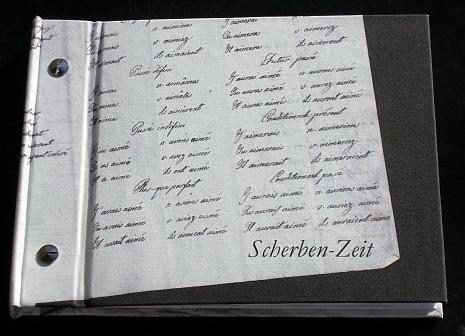 n. aimions
v. aimiez
ils aimaient
Passé défini
n. aimâmes
v. aimâtes
ils aimèrent
Passé indéfini
J'ai aimé n. avons aimé
Tu as aimé v. avez aimé
Il a aimé ils ont aimé
Plus-que-parfait
J'avais aimé n. avions aimé
Tu avais aimé v. aviez aimé
Il avait aimé ils avaient aimé
J'aimerai
Tu aimeras v. aimerez
Il aimera ils aimeront
Futur passé
J'aurai aimé n. aurons aimé
Tu auras aimé v. aurez aimé
Il aura aimé ils auront aimé
Conditionnel présent
J'aimerais n. aimerions
Tu aimerais v. aimeriez
Il aimerait ils aimeraient
Conditionnel passé
J'aurais aimé n. aurions aimé
Tu aurais aimé v. auriez aimé
Il aurait aimé ils auraient aimé
Scherben-Zeit